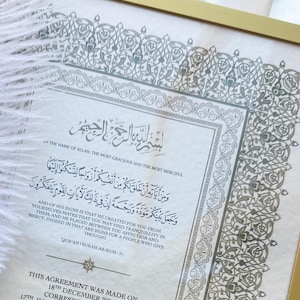 بسم الله الرحمن الرحيم
IN THE NAME OF ALLAH, THE MOST GRACIOUS AND THE MOST MERCIFUL
ومن آياته أن خلق لكم من أنفسكم أزواجا لتسكنوا إليها
وجعل بينكم مودة ورحمة إن في ذلك لآيات لقوم يتفكرون
AND OF HIS SIGNS IS THAT HE CREATED FOR YOU FROM
YOURSELVES MATES THAT YOU MAY FIND TRANQUILITY IN
THEM; AND HE PLACED BETWEEN YOU AFFECTION AND
MERCY. INDEED IN THAT ARE SIGNS FOR A PEOPLE WHO GIVE
THOUGHT
QUR'AN
THIS AGREEMENT WAS MADE ON
18TH DECEMBER
CORRES
17TH